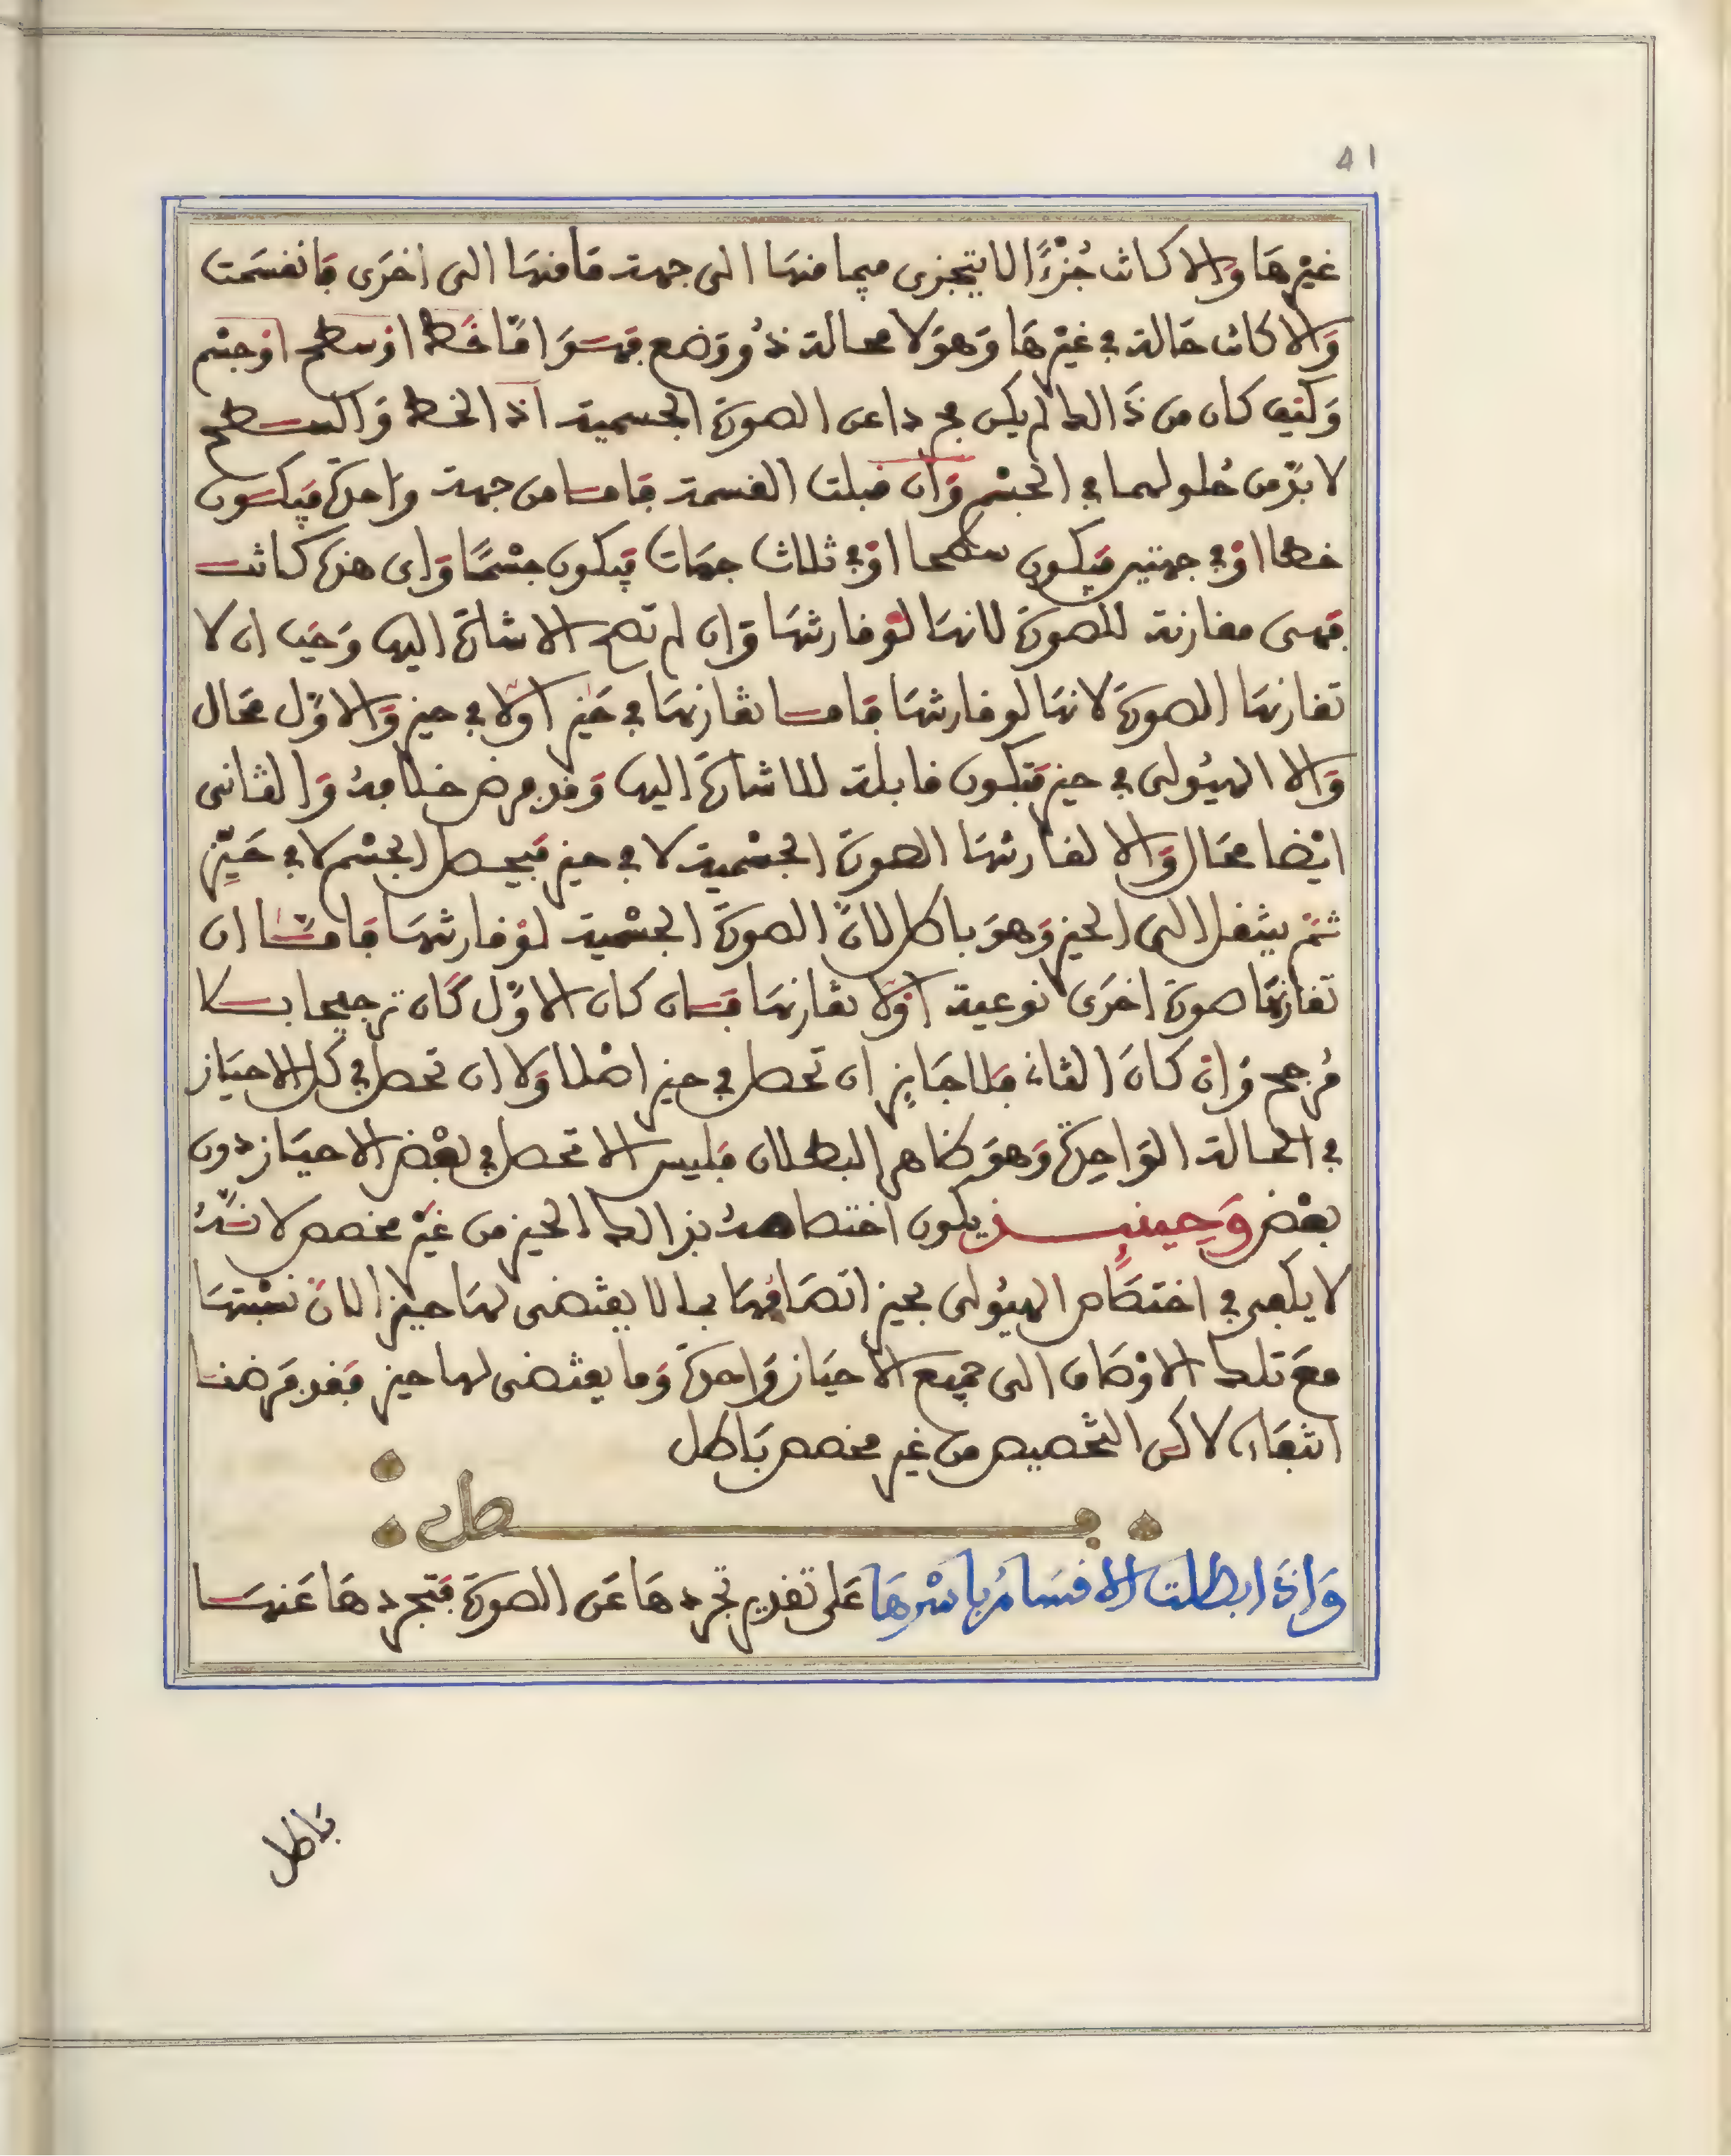 41
غيْرِهَا وَالا كانت جُزْءًا لا يتجزى فيما منها الى جهة فَامنهَا الى اخرَى فَانقسَمت
وَالا كانت حَالة في غيْرهَا وَهوَ لا محالة ذُو وَضع فهوَ امَّا خَط اوْ سطح اوْ جسْم
وَكيْف كان من ذَالك لم يكن مجردا عن الصورة الجسمية اذ الخط وَالسطح
لا بدّ من حُلولهما في الجسْم وَان قبلت القسمة فاما من جهة واحدة فيَكون
خطا اوْ في جهتين فيَكون سطحا اوْ في ثلاث جهَات فيَكون جسْمًا وَاى هذه كانت
فهى مقارنة للصورة لانهَا لوْ فارقتهَا وَان لم تصح الاشارة اليها وَجَب ان لا
تقارنهَا الصورَة لانهَا لو فارقتهَا فاما تقارنهَا في حَيّز اوْلا في حيز وَالاوّل محَال
وَالا الهيُولى في حيز فتَكون قابلة للاشارَة اليها وَقد فرض خلافهُ وَالثانى
ايْضا محَال وَالا لقارنتهَا الصورة الجسْمية لا في حيز فيَحصل الجسْم لا في حَيّزٍ
ثمّ ينتقل الى الحيز وَهوَ باطل لانّ الصورَة الجسْمية لوْ فارقتهَا فامَّا ان
تقارنهَا صورة اخرَى نوعية اوْلا تقارنهَا فان كان الاوّل كَان ترجيحا بلا
مُرجح وَان كَانَ الثان فلا جَايِز ان تحصل في حيز اصْلا وَلا ان تحصل في كل الاحيَاز
في الحالة الوَاحِدَة وَهوَ ظاهر البطلان فليس الا تحصل في بعْض الاحيَاز دون
بعْض وَحِينئِــذٍ يكون اختصاصهُ بذالك الحيز من غيْر مخصص لانّهُ
لا يكفى في اختصَاص الهيُولى بحيز اتصَافهَا بما لا يقتضى لهَا حيّزا لانّ نسْبتهَا
معَ تلك الاوْصَاف الى جميع الاحيَاز وَاحدَة وَما يقتضى لها حيز فقد فرَضنا
انتفَاءه لاكن التخصيص من غير مخصص بَاطل
فـــصل
وَاذَا بطلت الاقسَامُ باسْرهَا عَلى تقدير تجردهَا عَن الصورَة فتجردهَا عَنهَا
بَاطل